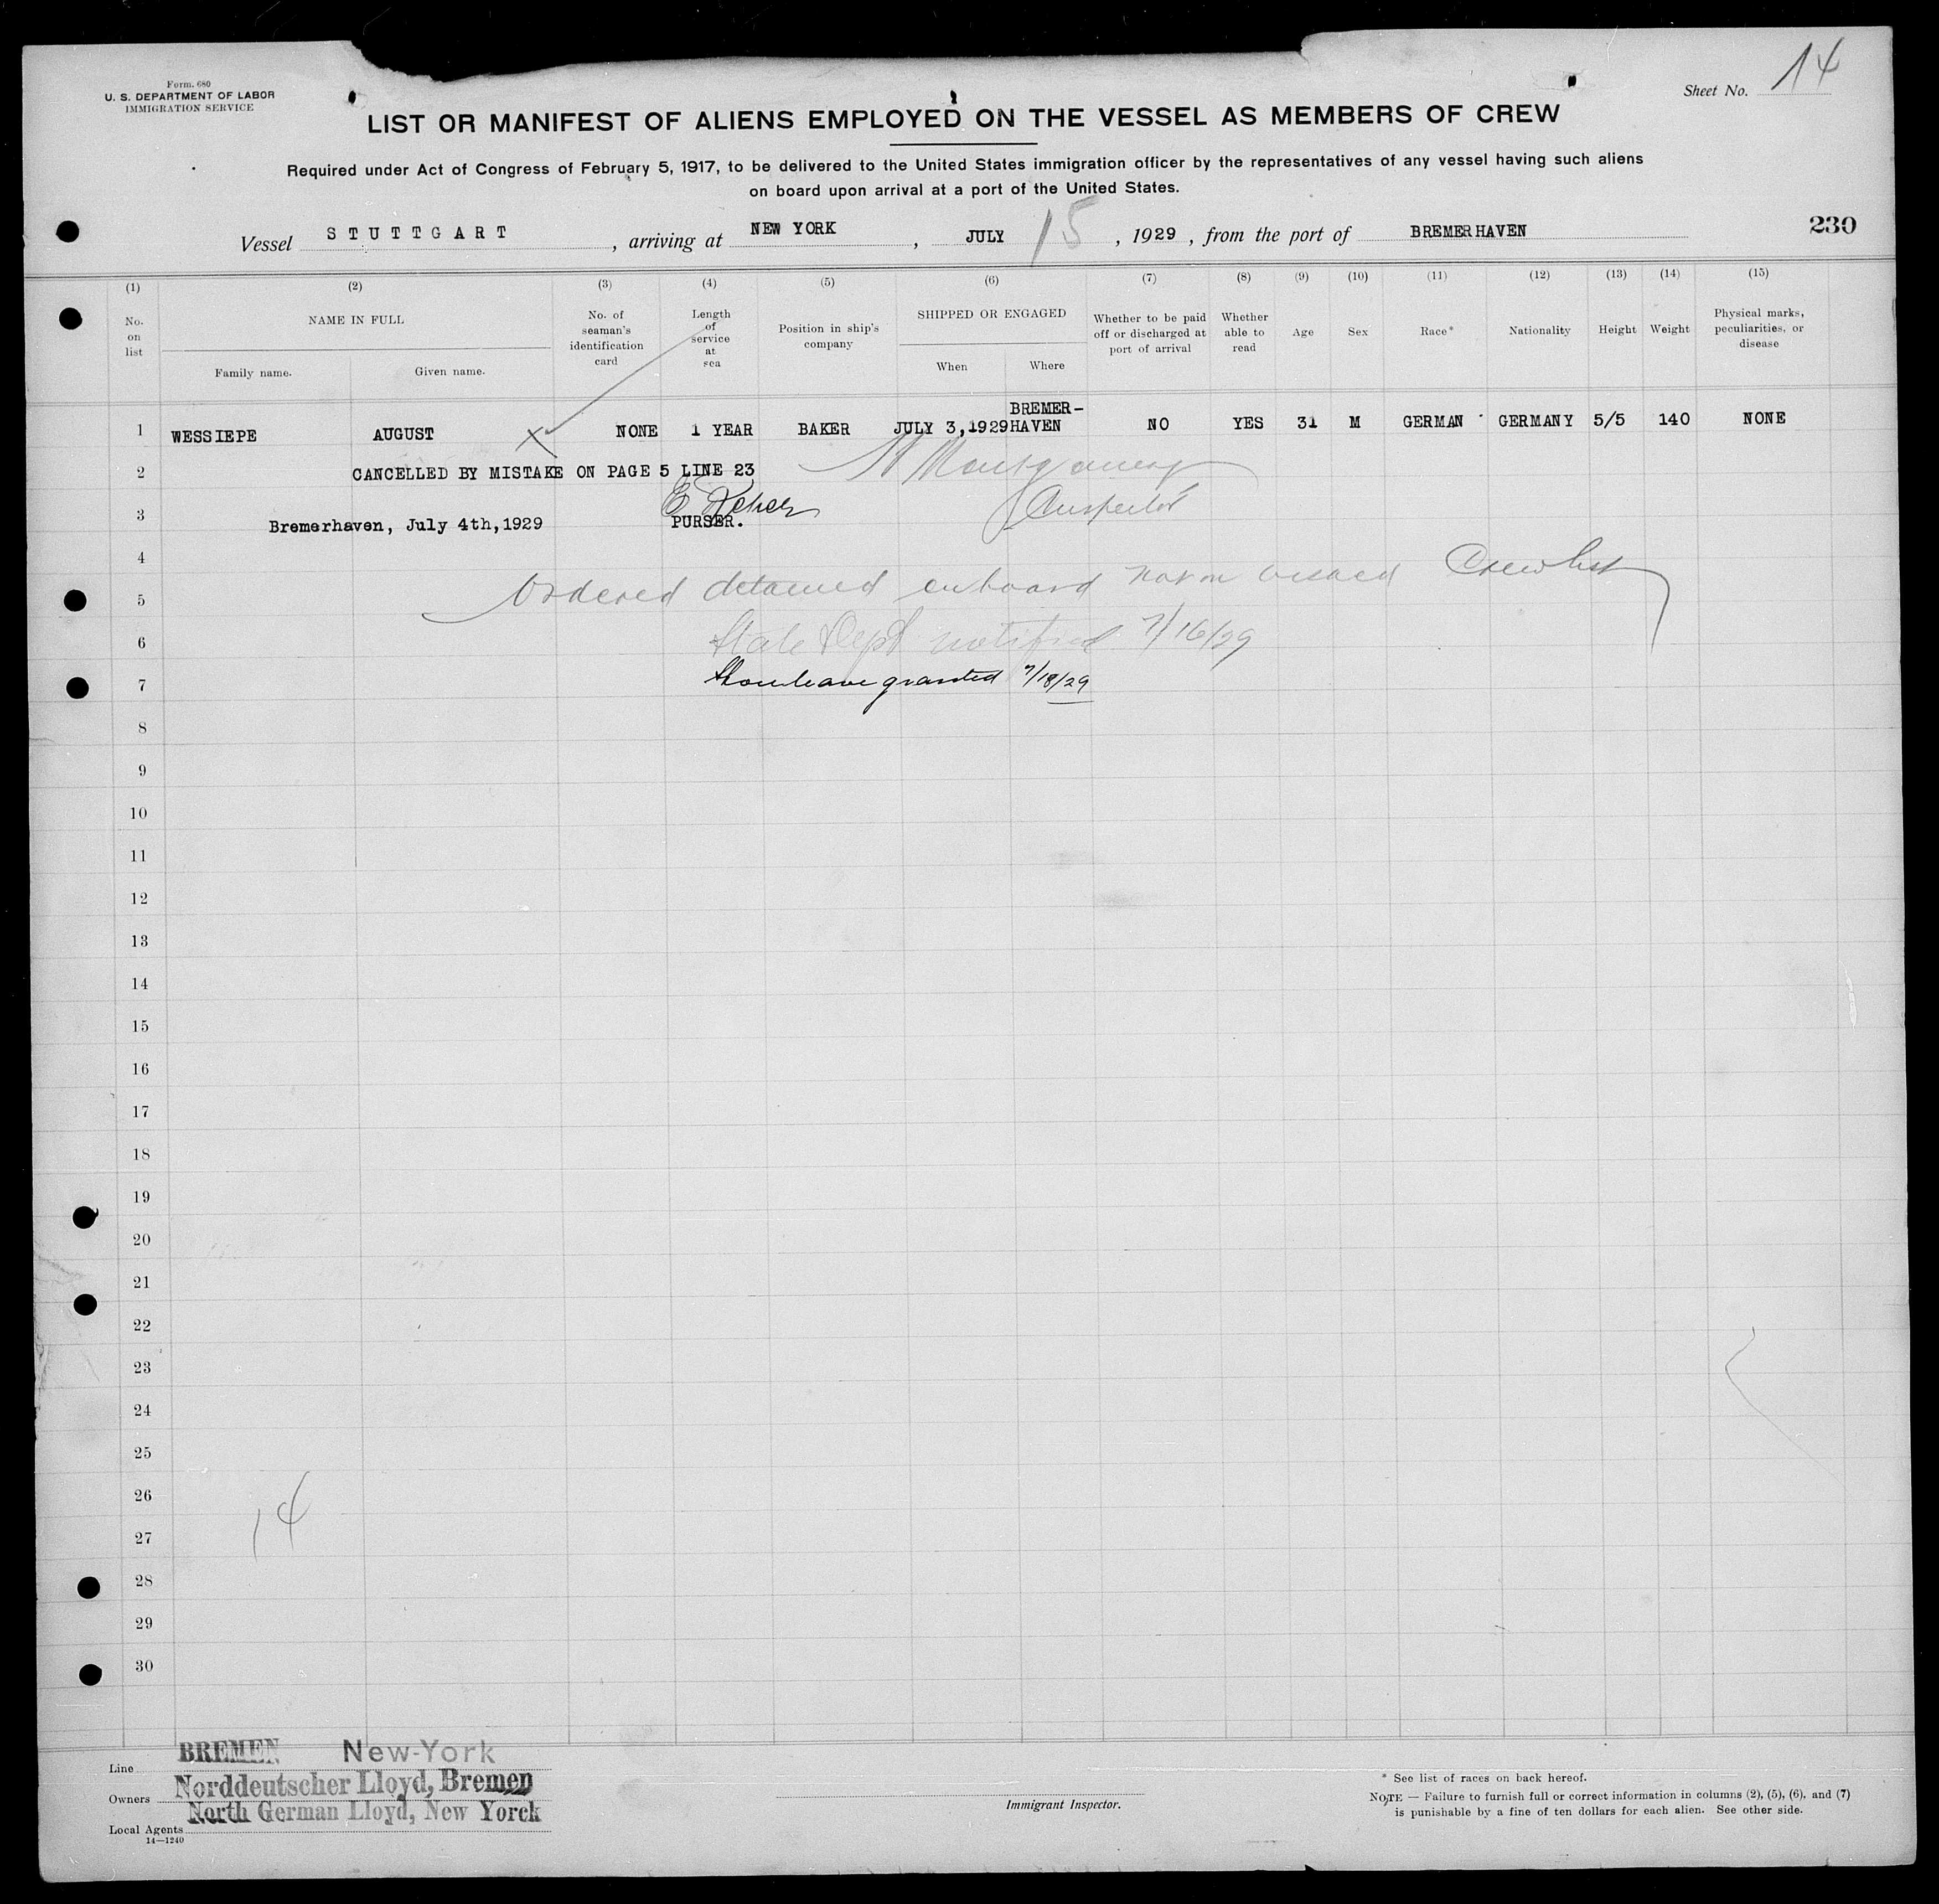 Form. 680
U. S. DEPARTMENT OF LABOR
IMMIGRATION SERVICE
Sheet No. 14
LIST OR MANIFEST OF ALIENS EMPLOYED ON THE VESSEL AS MEMBERS OF CREW
Required under Act of Congress of February 5, 1917, to be delivered to the United States immigration officer by the representatives of any vessel having such aliens
on board upon arrival at a port of the United States.
Vessel STUTTGART, arriving at NEW YORK, JULY 15, 1929, from the port of BREMERHAVEN
230
(1) (2) (3) (4) (5) (6) (7) (8) (9) (10) (11) (12) (13) (14) (15)
No. on list
NAME IN FULL
Family name. Given name.
No. of seaman's identification card
Length of service at sea
Position in ship's company
SHIPPED OR ENGAGED
When Where
Whether to be paid off or discharged at port of arrival
Whether able to read
Age
Sex
Race*
Nationality
Height
Weight
Physical marks, peculiarities, or disease
1 WESSIEPE AUGUST X NONE 1 YEAR BAKER JULY 3,1929 BREMER-HAVEN NO YES 31 M GERMAN GERMANY 5/5 140 NONE
2 CANCELLED BY MISTAKE ON PAGE 5 LINE 23
Montgomery
Inspector
3 Bremerhaven, July 4th,1929 PURSER.
4
5 Ordered detained on board not on visaed Crew list
6 State Dept notified 7/16/29
7 Shore leave granted 7/18/29
8
9
10
11
12
13
14
15
16
17
18
19
20
21
22
23
24
25
26
27
28
29
30
14
Line BREMEN New-York
Owners Norddeutscher Lloyd, Bremen
Local Agents North German Lloyd, New Yorck
14—1240
Immigrant Inspector.
* See list of races on back hereof.
NOTE — Failure to furnish full or correct information in columns (2), (5), (6), and (7)
is punishable by a fine of ten dollars for each alien. See other side.